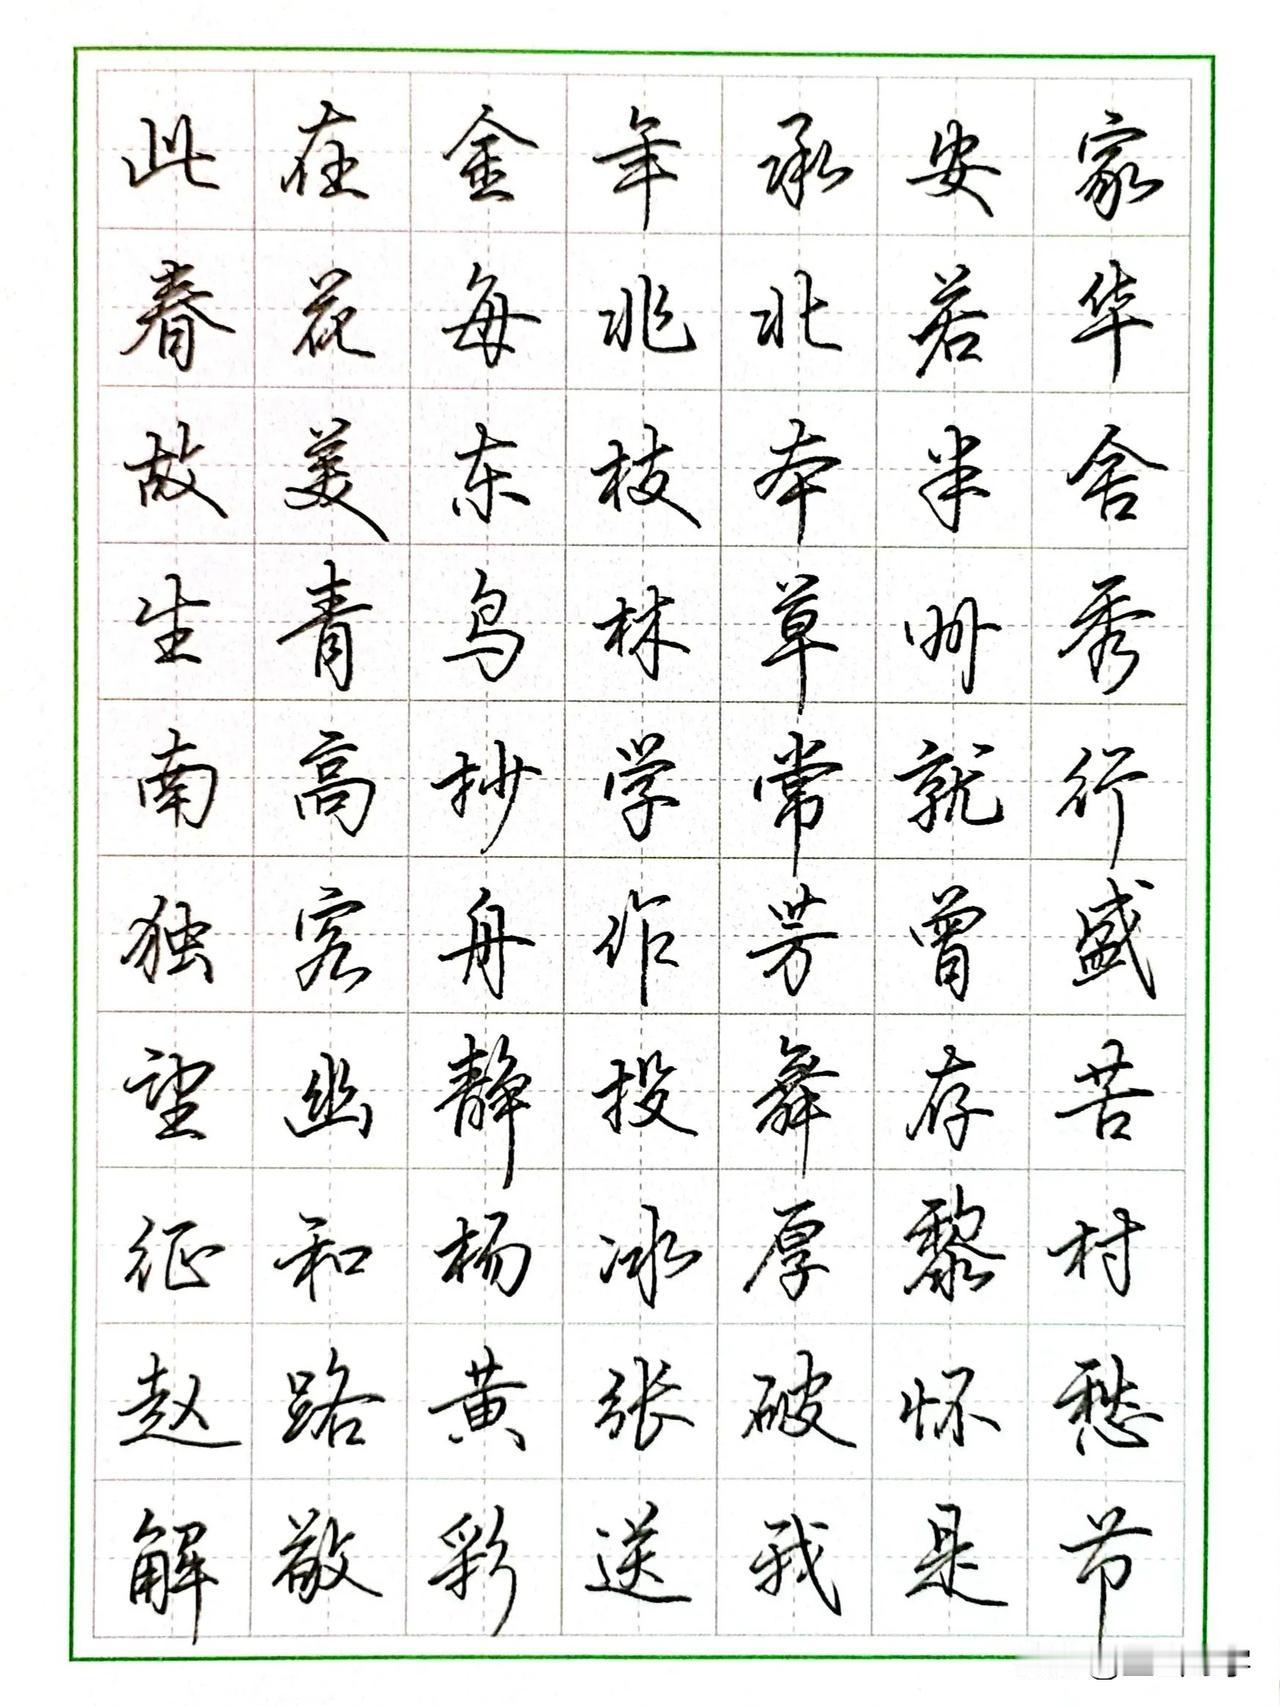 此在金年承安家
春花每兆北若华
故美东枝本半舍
生青鸟林草州秀
南高抄学常就行
独客舟作芳曾盛
望幽静投舞存苦
征和杨冰厚黎村
赵路黄张破怀愁
解敬彩送我是节